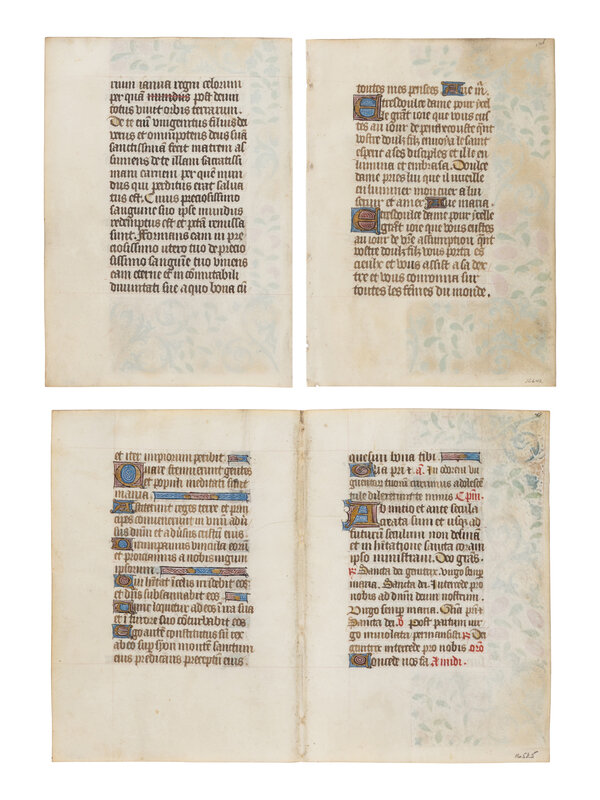 rium ianua regni celorum
per quā mundus post deum
totus viuit orbis terrarum.
De te enī vnigenitus filius dei
verus et omnipotens deus suā
sanctissimā fecit matrem as
sumens de te illam sacratissi
mam carnem per quam mun
dus qui perditus erat salua
tus est. Cuius preciosissimo
sanguine suo ipse mundus
redemptus est et pctā remissa
sunt. Formans eam in pre
ciosissimo utero tuo de precio
sissimo sanguine tuo vniens
eam eterne et in cōmutabili
diuinitati sue a quo bona cū
toutes mes pensees Aue m̄.
Tresdoulce dame pour ycel
le grāt ioie que vous eus
tes au iour de penthecouste qn̄t
vostre doulz filz enuoya le saint
esperit a ses disciples et ille en
lumina et embrasa. Doulce
dame pries lui que il vueille
enluminer mon cuer a lui
seruir et amer Aue maria.
Tresdoulce dame pour ycelle
grāt ioie que vous eustes
au iour de vr̄e assumption qn̄t
vostre doulz filz vous porta es
cieulx et vous assist a sa dex
tre et vous couronna sur
toutes les fēmes du monde.
et iter impiorum peribit.
Quare fremuerunt gentes
et populi meditati sūt
inania.
Astiterunt reges terre et prin
cipes conuenerunt in vnū adū
sus dn̄m et aduersus cristū eius.
Dirumpamus vincula eorū
et proiciamus a nobis iugum
ipsorum.
Qui hitat ī celis irridebit eos
et dn̄s subsannabit eos.
Tunc loquetur ad eos ī ira sua
et ī furore suo cōturbabit eos
Ego autē constitutus sū rex
ab eo sup syon montē sanctum
eius predicans preceptū eius.
quesiui bona tibi.
Gloria pri ⁊ a. In odorem vn
guentorum tuorū currimus adolescē
tule dilexerunt te nimis Capīm
Ab initio et ante secula
creata sum et usq; ad
futurū seculum non desinā
et in hitatione sancta coram
ipso ministraui. Deo grās.
℟ Sancta dei genitrix virgo semp
maria. Sancta dei Intercede pro
nobis ad dn̄m deum nostrum.
Virgo semp maria. Glīa pri ⁊
Sancta dei ℣ Post partum vir
go inuiolata permansisti ℟ De
genitrix intercede pro nobis orō
Concede nos fa A midi.